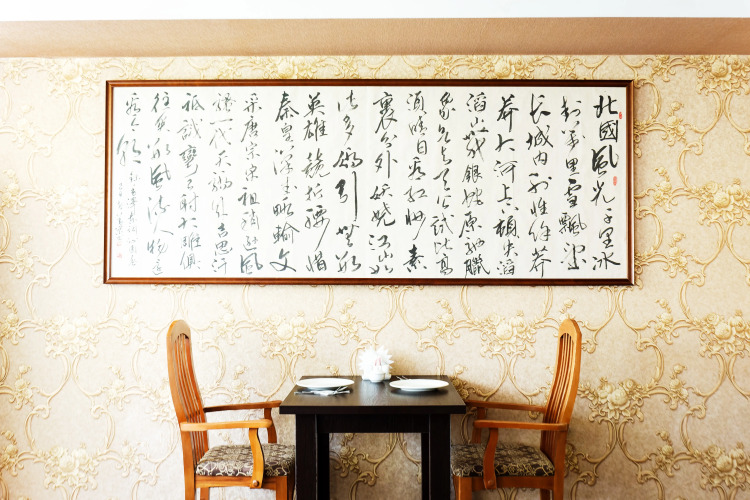 北國風光千里冰
封萬里雪飄望
長城内外惟餘莽
莽大河上下頓失滔
滔山舞銀蛇原馳臘
象欲与天公试比高
須晴日看红妆素
裹分外妖娆江山如
此多嬌引無數
英雄競折腰惜
秦皇漢武略輸文
采唐宗宋祖稍遜風
騷一代天驕成吉思汗
祗識彎弓射大雕俱
往矣數風流人物還
看今朝